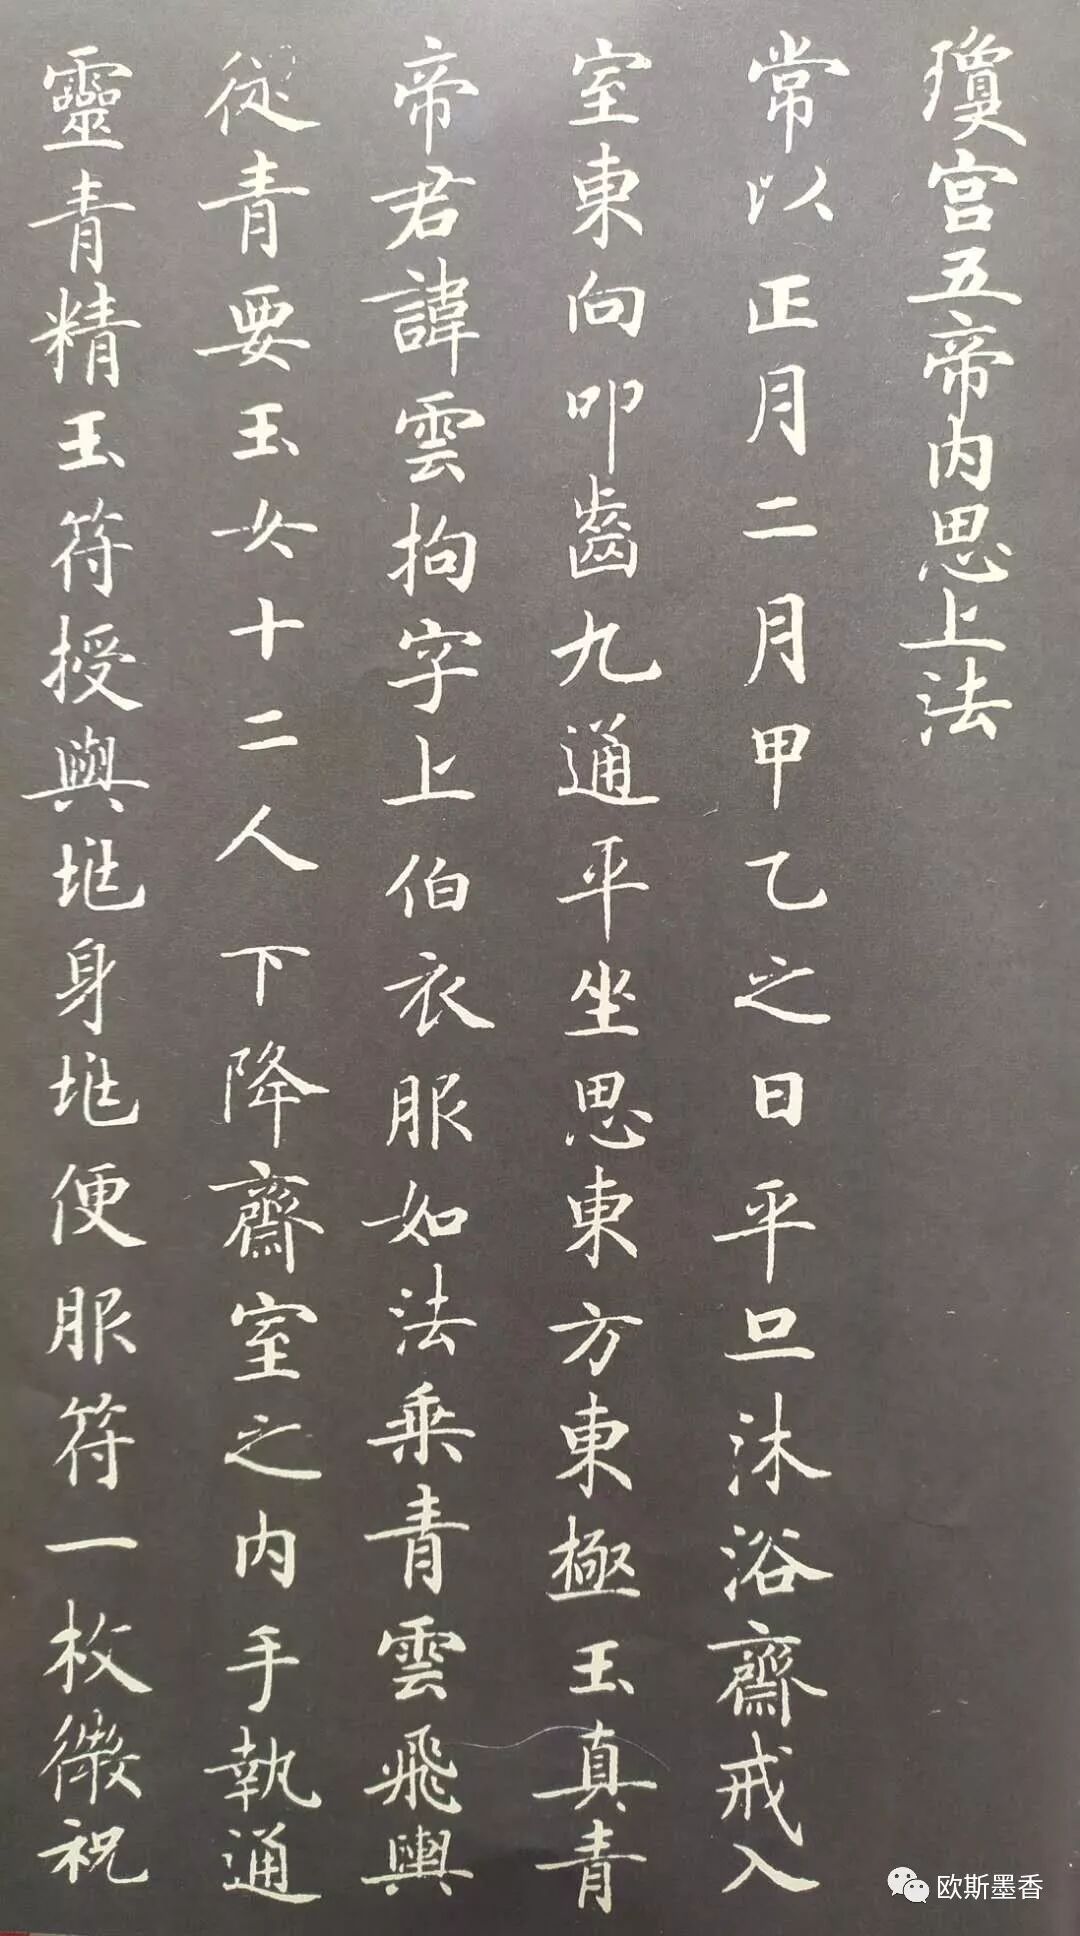 瓊宮五帝內思上法
常以正月二月甲乙之日平旦沐浴齋戒入
室東向叩齒九通平坐思東方東極玉真青
帝君諱雲拘字上伯衣服如法乘青雲飛輿
從青要玉女十二人下降齋室之內手執通
靈青精玉符授與兆身兆便服符一枚微祝
欧斯墨香